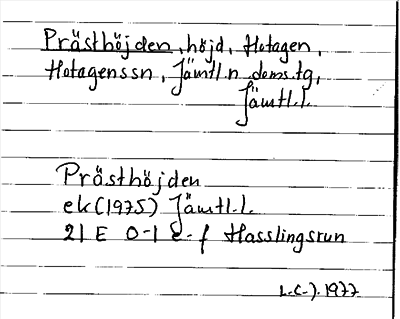 Prästhöjden, höjd, Hotagen,
Hotagenssn, Jämtl.n. doms.tg,
Jämtl.l.
Prästhöjden
ek (1975) Jämtl.l.
21 E 0-1 e-f Hasslingsrun
L.C-J. 1977